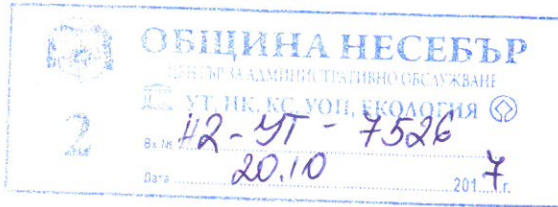 ОБЩИНА НЕСЕБЪР
ЦЕНТЪР ЗА АДМИНИСТРАТИВНО ОБСЛУЖВАНЕ
УТ, НК, КС, УОП, ЕКОЛОГИЯ
2
Вх. № Н2-УТ-7526
Дата 20.10 2017 г.